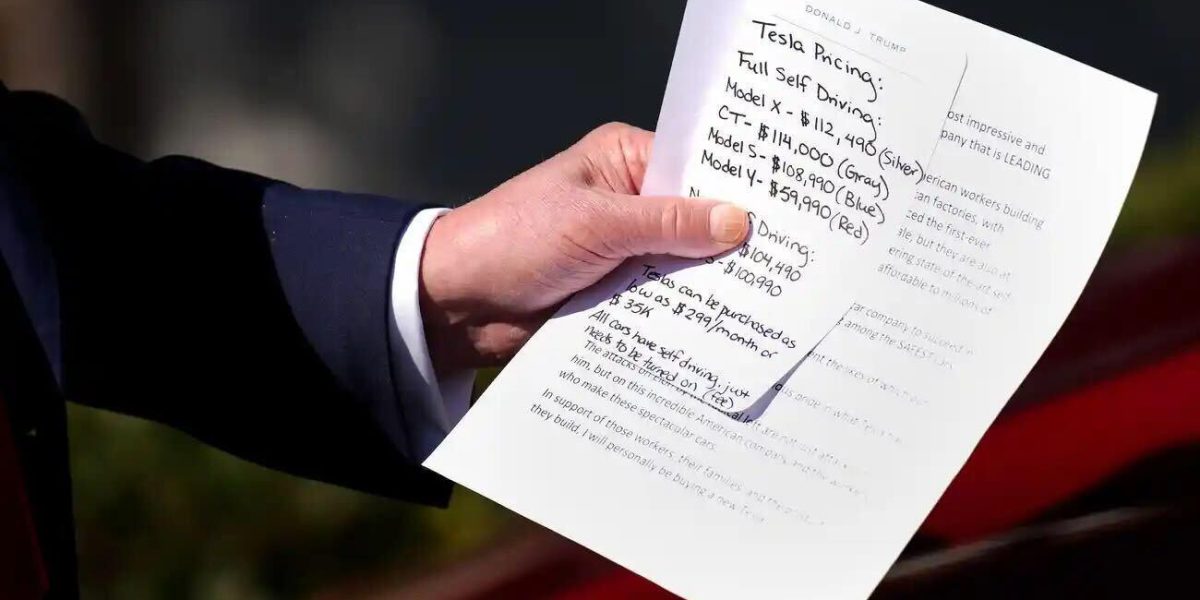 DONALD J. TRUMP
Tesla Pricing:
Full Self Driving:
Model X - $112,490 (Silver)
CT- $114,000 (Gray)
Model S- $108,990 (Blue)
Model Y- $59,990 (Red)
Driving:
$104,490
- $100,990
Teslas can be purchased as
low as $299/month or
$35K
All cars have self driving, just
needs to be turned on (fee)
ost impressive and
pany that is LEADING
erican workers building
an factories, with
ced the first-ever
ale, but they are also at
ering state-of-the-art self
affordable to millions of
ar company to succeed in
among the SAFEST cars
nt the likes of which
s pride in what Tesla has
The attacks on
him, but on this incredible American company, and the workers
who make these spectacular cars.
In support of those workers, their families, and the
they build, I will personally be buying a new Tesla